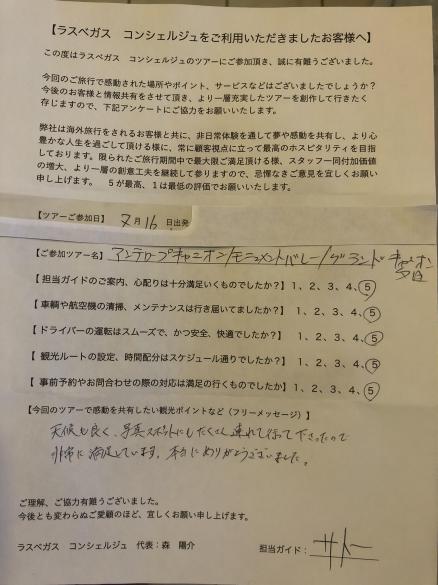 【ラスベガス　コンシェルジュをご利用いただきましたお客様へ】
この度はラスベガス　コンシェルジュのツアーにご参加頂き、誠に有難うございました。
今回のご旅行で感動された場所やポイント、サービスなどはございましたでしょうか？
今後のお客様と情報共有をさせて頂き、より一層充実したツアーを創作して行きたく
存じますので、下記アンケートにご協力をお願いいたします。
弊社は海外旅行をされるお客様と共に、非日常体験を通して夢や感動を共有し、より心
豊かな人生を過ごして頂ける様に、常に顧客視点に立って最高のホスピタリティを目指
しております。限られたご旅行期間中で最大限ご満足頂ける様、スタッフ一同付加価値
の増大、より一層の創意工夫を継続して参りますので、忌憚なきご意見を宜しくお願い
申し上げます。　５が最高、１は最低の評価でお願いいたします。
【ツアーご参加日】 7月16 日出発
【ご参加ツアー名】 アンテロープキャニオン/モニュメントバレー/グランドキャニオン
【担当ガイドのご案内、心配りは十分満足いくものでしたか？】 1、2、3、4、5
【車輌や航空機の清掃、メンテナンスは行き届いてましたか？】 1、2、3、4、5
【ドライバーの運転はスムーズで、かつ安全、快適でしたか？】 1、2、3、4、5
【 観光ルートの設定、時間配分はスケジュール通りでしたか？】 1、2、3、4、5
【 事前予約やお問合わせの際の対応は満足の行くものでしたか】 1、2、3、4、5
【今回のツアーで感動を共有したい観光ポイントなど（フリーメッセージ）】
天候も良く、写真スポットにもたくさん連れて行って下さったので
非常に満足しています。本当にありがとうございました。
ご理解、ご協力有難うございました。
今後とも変わらぬご愛顧のほど、宜しくお願い申し上げます。
ラスベガス　コンシェルジュ　代表：森　陽介
担当ガイド： サトー